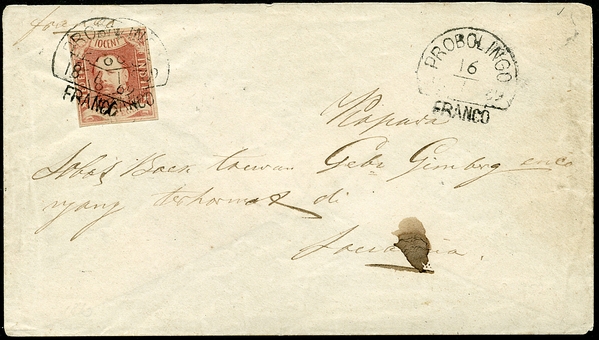 franco
PROBOLINGO
10CENT
FRANCO
PROBOLINGO
16
1
FRANCO
Kapada
Sobat Baek towan Gebr Gimberg enco
nyang terhormat di
Soerabaia.